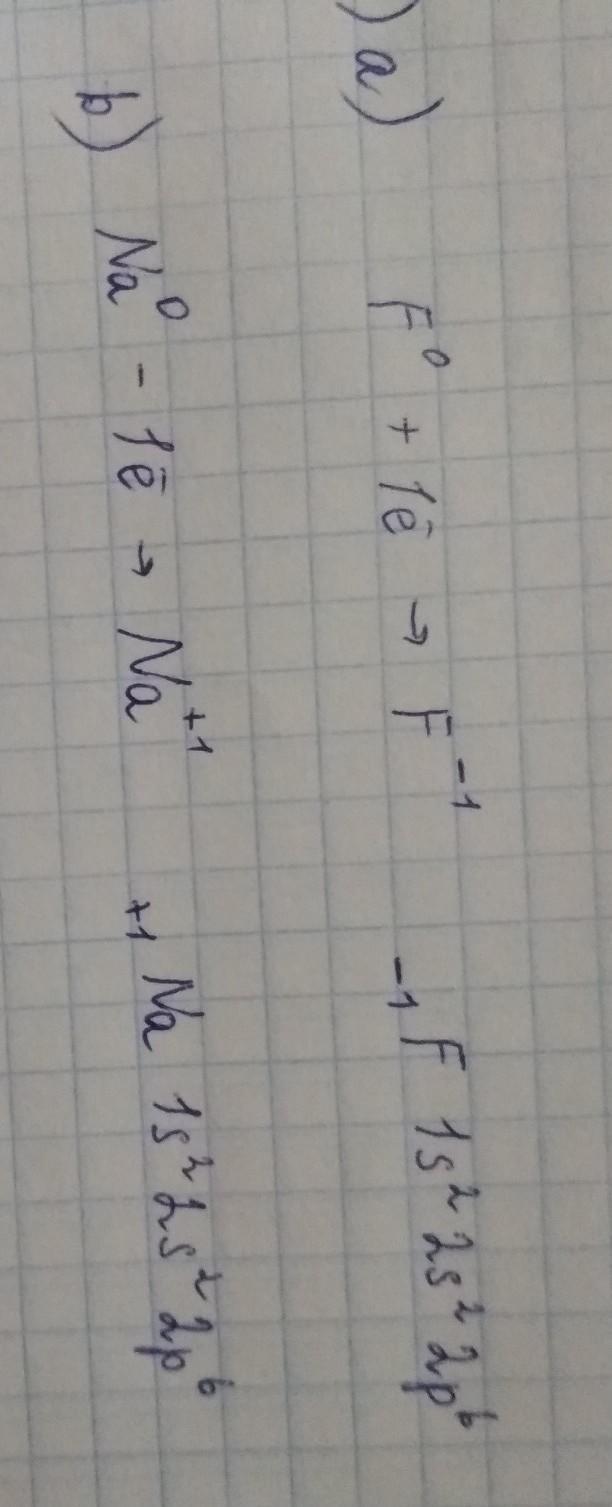 ) a) F⁰ + 1ē → F⁻¹ ₋₁F 1s² 2s² 2p⁶
b) Na⁰ - 1ē → Na⁺¹ ₊₁Na 1s² 2s² 2p⁶